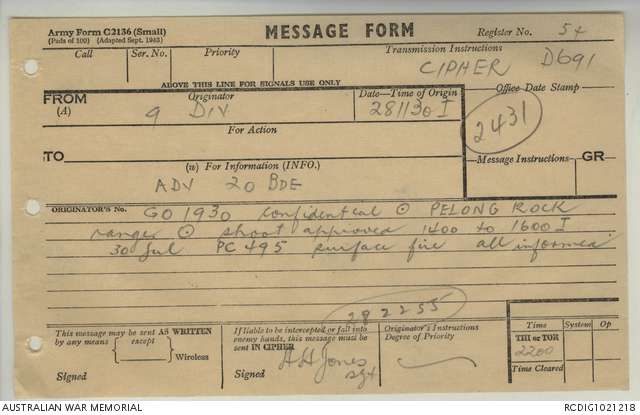 Army Form C2136 (Small)
(Pads of 100) (Adapted Sept. 1943)
MESSAGE FORM
Register No. 54
Call Ser. No. Priority Transmission Instructions
CIPHER D691
ABOVE THIS LINE FOR SIGNALS USE ONLY
FROM
(A)
Originator
9 DIV
Date—Time of Origin
281130 I
Office Date Stamp
2431
For Action
TO
(W) For Information (INFO.)
ADV 20 BDE
Message Instructions GR
ORIGINATOR'S No. GO 1930 confidential ⊙ PELONG ROCK
ranges ⊙ shoot approved 1400 to 1600 I
30 Jul PC 495 surface fire all informed
282255
This message may be sent AS WRITTEN
by any means except
Wireless
Signed
If liable to be intercepted or fall into
enemy hands, this message must be
sent IN CIPHER
Signed A H Jones
Sgt
Originator's Instructions
Degree of Priority
Time System Op
THI or TOR
2200
Time Cleared
AUSTRALIAN WAR MEMORIAL
RCDIG1021218